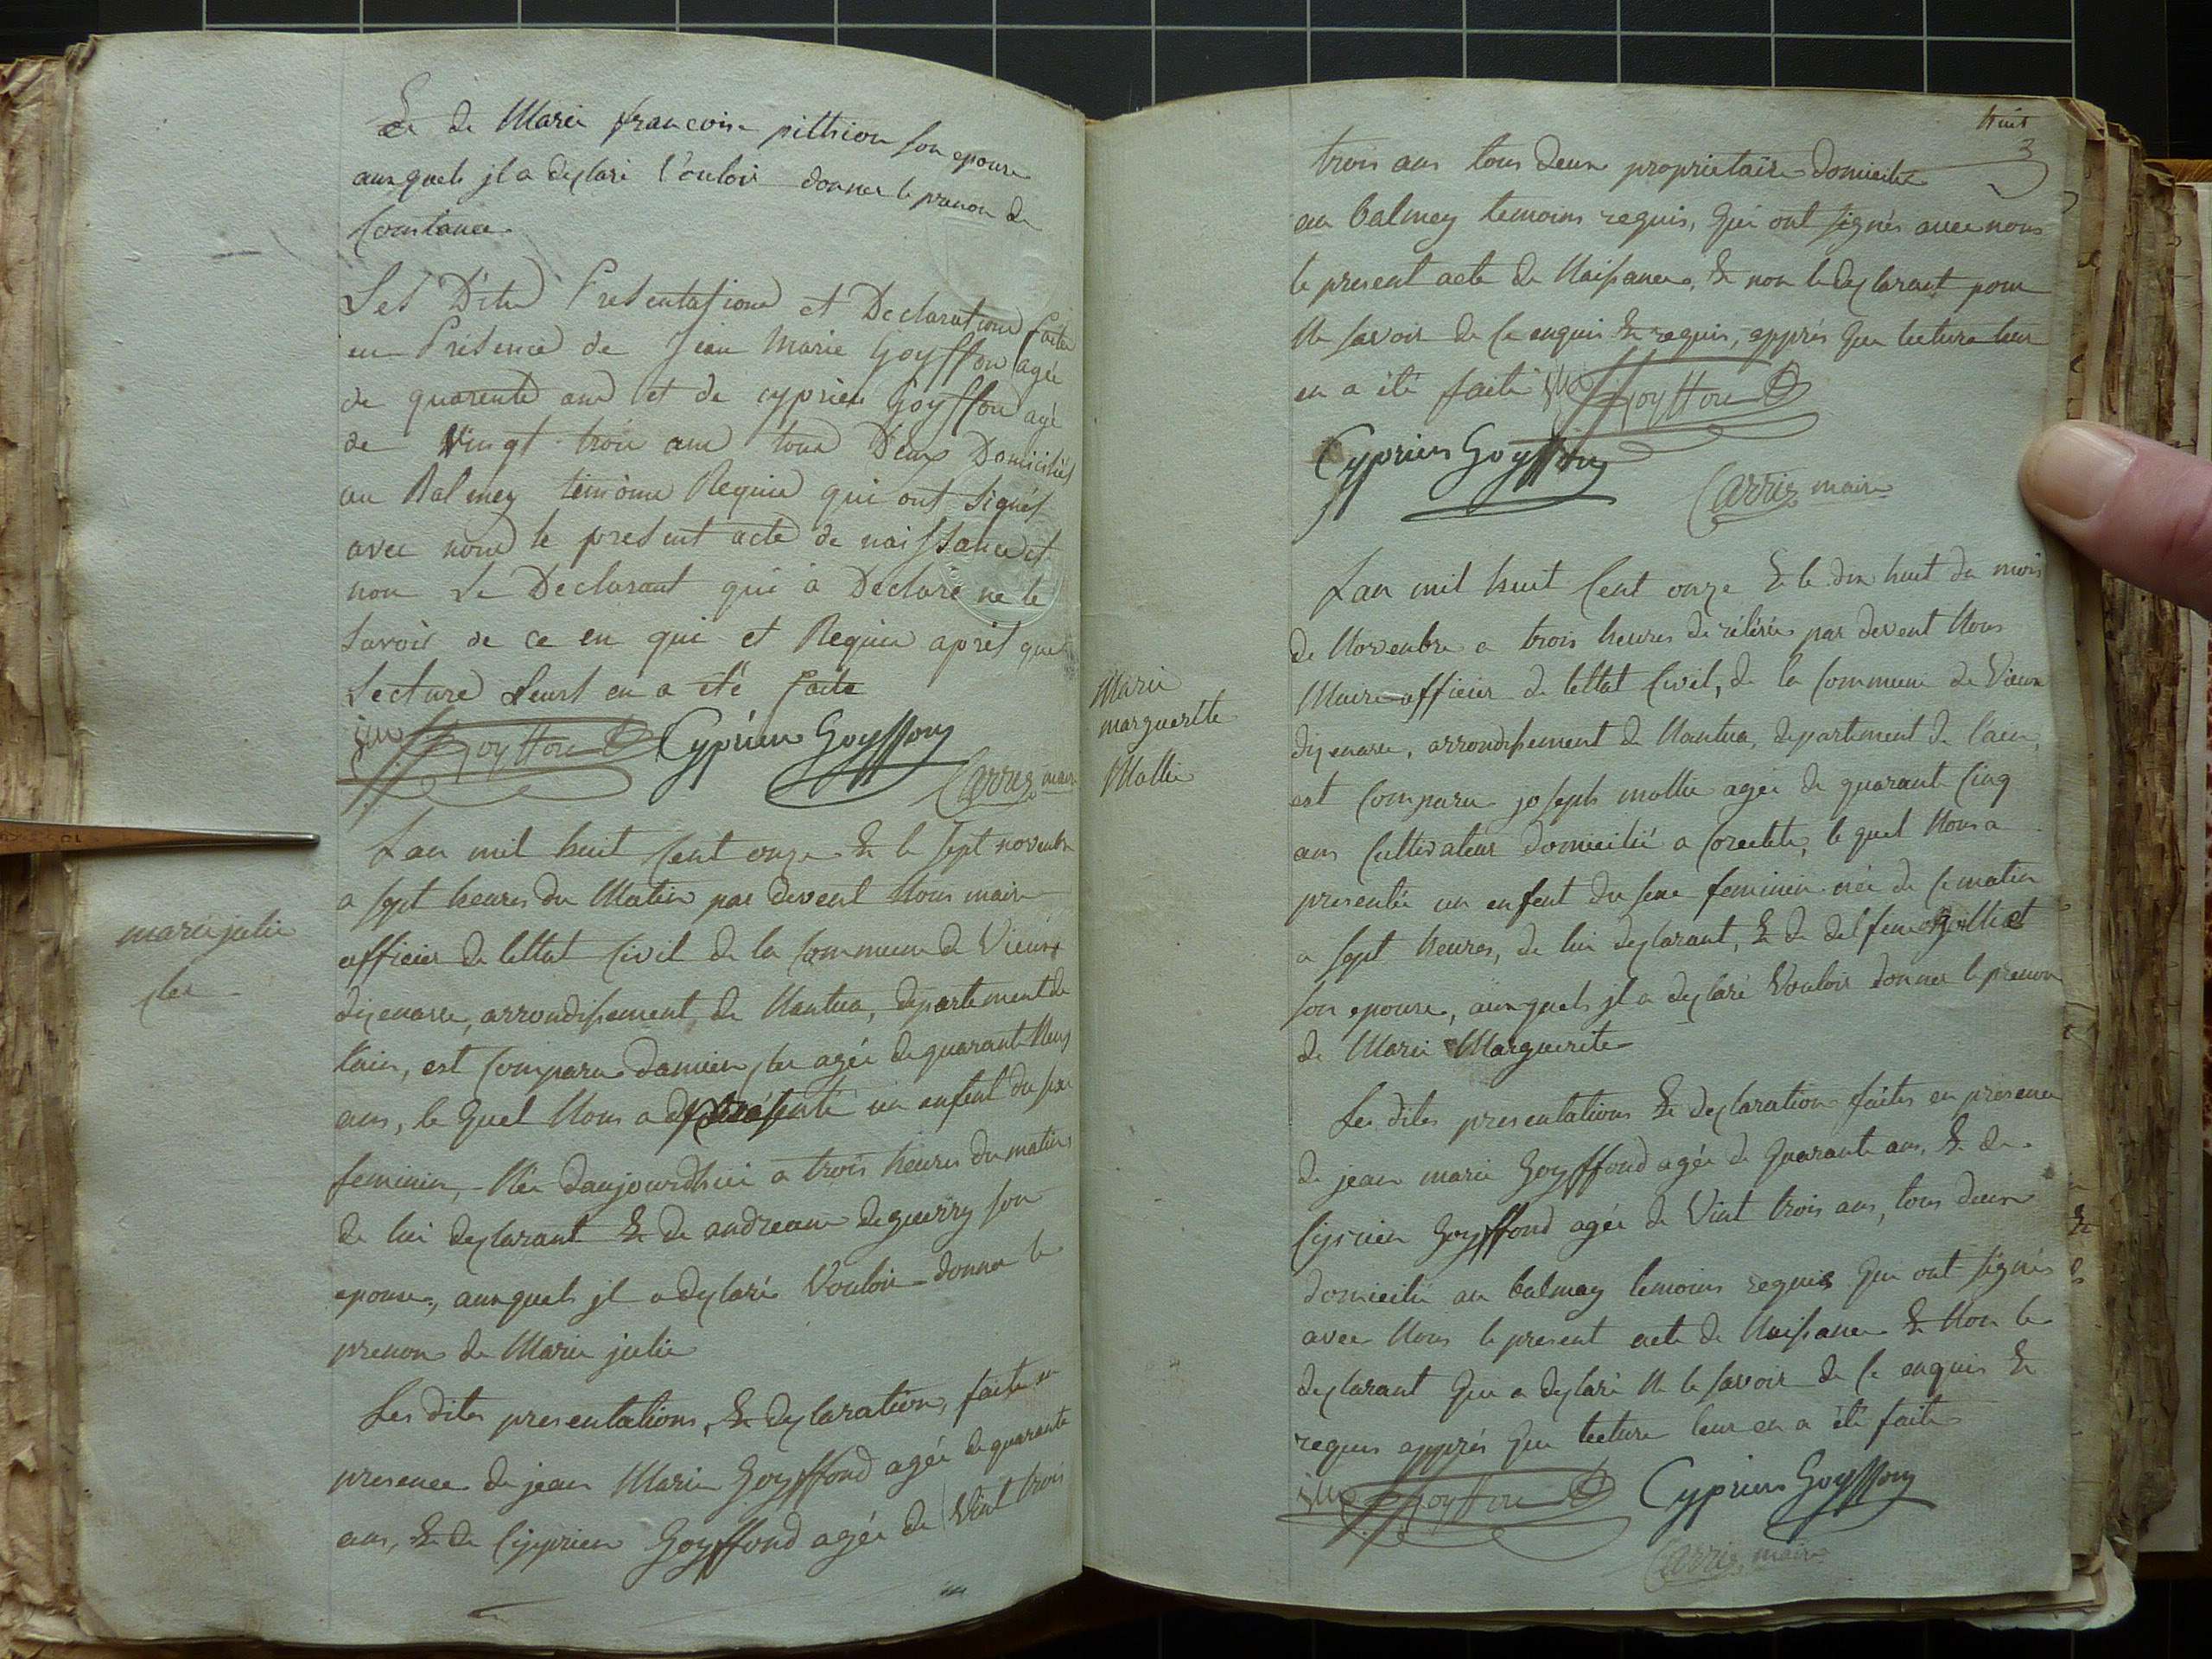 & de Marie francoise pithion son epouse
auxquels jl a declaré Vouloir donner le prenon de
Constance.
Les Dites Presentations et Declarations faites
en Présence de Jean Marie Goyffon agée
de quarente ans et de cyprien Goyffon agé
de Vingt trois ans tous Deux Domiciliés
au Balmey temoins Requis qui ont Signés
avec nous le present acte de naissance et
non Le Declarant qui à Declaré ne le
Savoir de ce en qui et Requis aprés que
Lecture Leurs en a été faite
Goyffon Cyprien Goyffon
Carrier maire
marie julie
L'an mil huit Cent onze & le sept novembre
a sept heures du Matin par devent Nous maire
officier de lettat Civil de la Commune de Vieux
dizenave, arrondissement de Nantua, departement de
lain, est Comparu damien agée de quarant Neuf
ans, le quel Nous a presenté un enfent du sexe
feminin, Née daujourdhui a trois heures du matin
de lui declarant & de andreane deguerry son
epouse, auxquels jl a declaré Vouloir donner le
prenon de Marie julie
Les dites presentations, & declaration, faite en
presence de jean Marie Goyffond agée de quarante
ans, & de Cyprien Goyffond agée de Vint trois
huit
3
trois ans tous deux proprietaire domicilié
au balmey temoins requis, Qui ont signés avec nous
le present acte de Naissance, & non le declarant pour
Ne savoir de Ce enquis & requis, apprés que lecture leur
en a été faite Goyffon
Cyprien Goyffon
Carrier maire
Marie
marguerite
Mollie
L'an mil huit Cent onze & le dix huit du mois
de Novembre a trois heures de rélévée par devent Nous
Maire officier de lettat Civil, de la Commune de Vieux
dizenave, arrondissement de Nantua, departement de l'ain,
est Comparu joseph mollie agée de quarant Cinq
ans Cultivateur domicilié a Corcelete, le quel Nous a
presentée un enfent du sexe feminin née de Ce matin
a sept heures, de lui declarant, & de delfine
son epouse, auxquels jl a declaré Vouloir donner le prenon
de Marie Marguerite
Les dites presentations & declaration faites en presence
de jean marie Goyffond agée de Quarante ans, & de
Ciprien Goyffond agée de Vint trois ans, tous deux
domicilié au balmay temoins requis Qui ont signés
avec Nous le present acte de Naissance & Non le
declarant Qui a declaré Ne le savoir de Ce enquis &
requis apprés que lecture leur en a été faite
Goyffon Cyprien Goyffon
Carrier maire